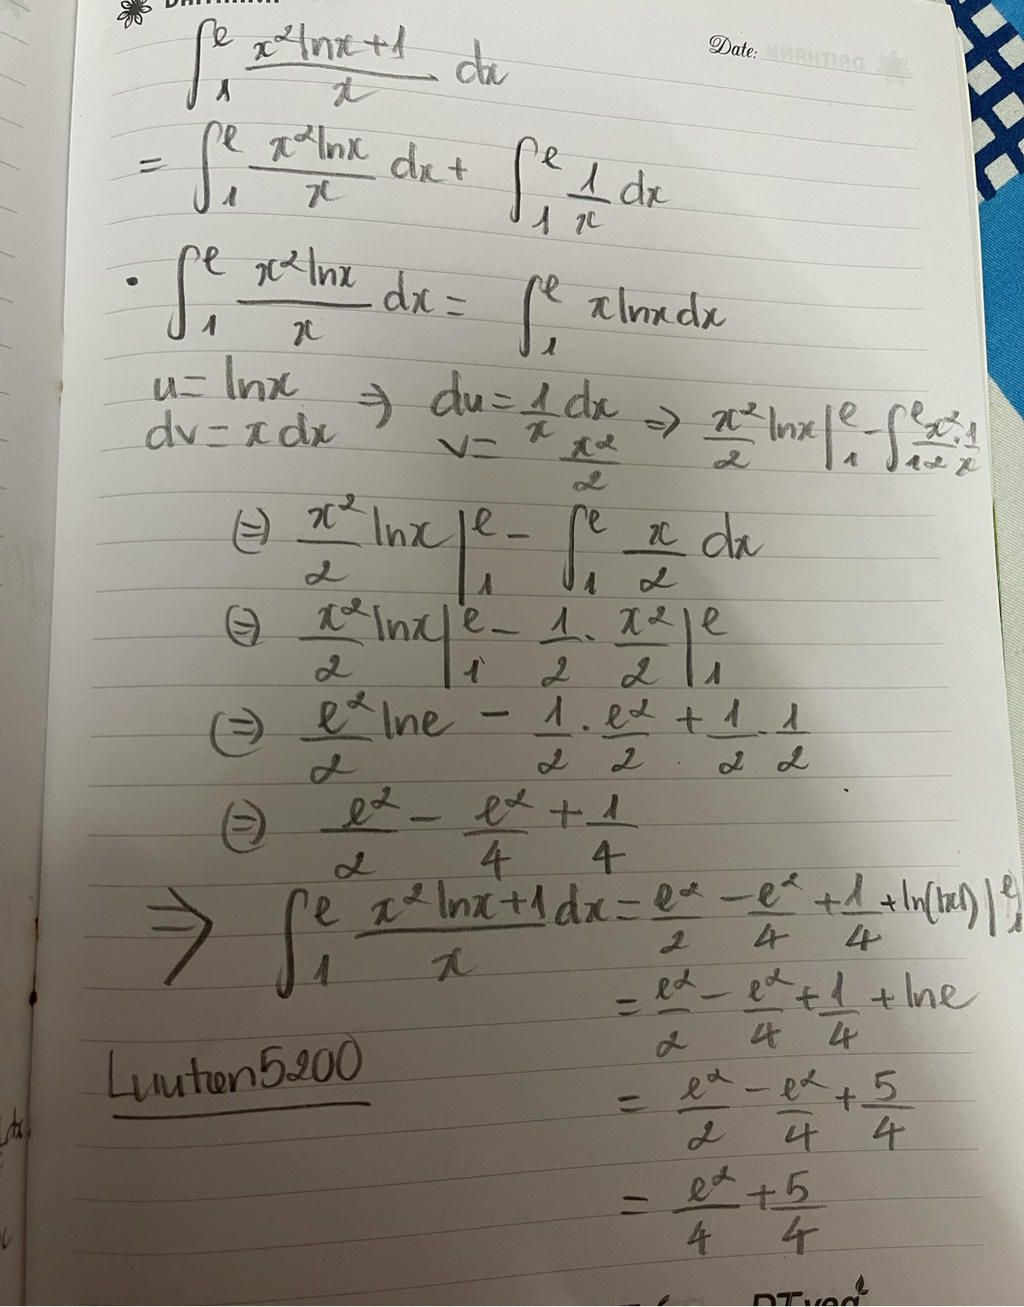 Date:
∫₁ᵉ (x²lnx+1)/x dx
= ∫₁ᵉ (x²lnx)/x dx + ∫₁ᵉ 1/x dx
• ∫₁ᵉ (x²lnx)/x dx = ∫₁ᵉ xlnxdx
u = lnx ⇒ du = 1/x dx
dv = x dx v = x²/2 ⇒ x²/2 lnx|₁ᵉ - ∫₁ᵉ x²/2 . 1/x
(=) x²/2 lnx|₁ᵉ - ∫₁ᵉ x/2 dx
(=) x²/2 lnx|₁ᵉ - 1/2 . x²/2|₁ᵉ
(=) e²/2 lne - 1/2 . e²/2 + 1/2 . 1/2
(=) e²/2 - e²/4 + 1/4
⇒ ∫₁ᵉ (x²lnx+1)/x dx = e²/2 - e²/4 + 1/4 + ln(|x|)|₁ᵉ
= e²/2 - e²/4 + 1/4 + lne
Luutien5200
= e²/2 - e²/4 + 5/4
= e²/4 + 5/4